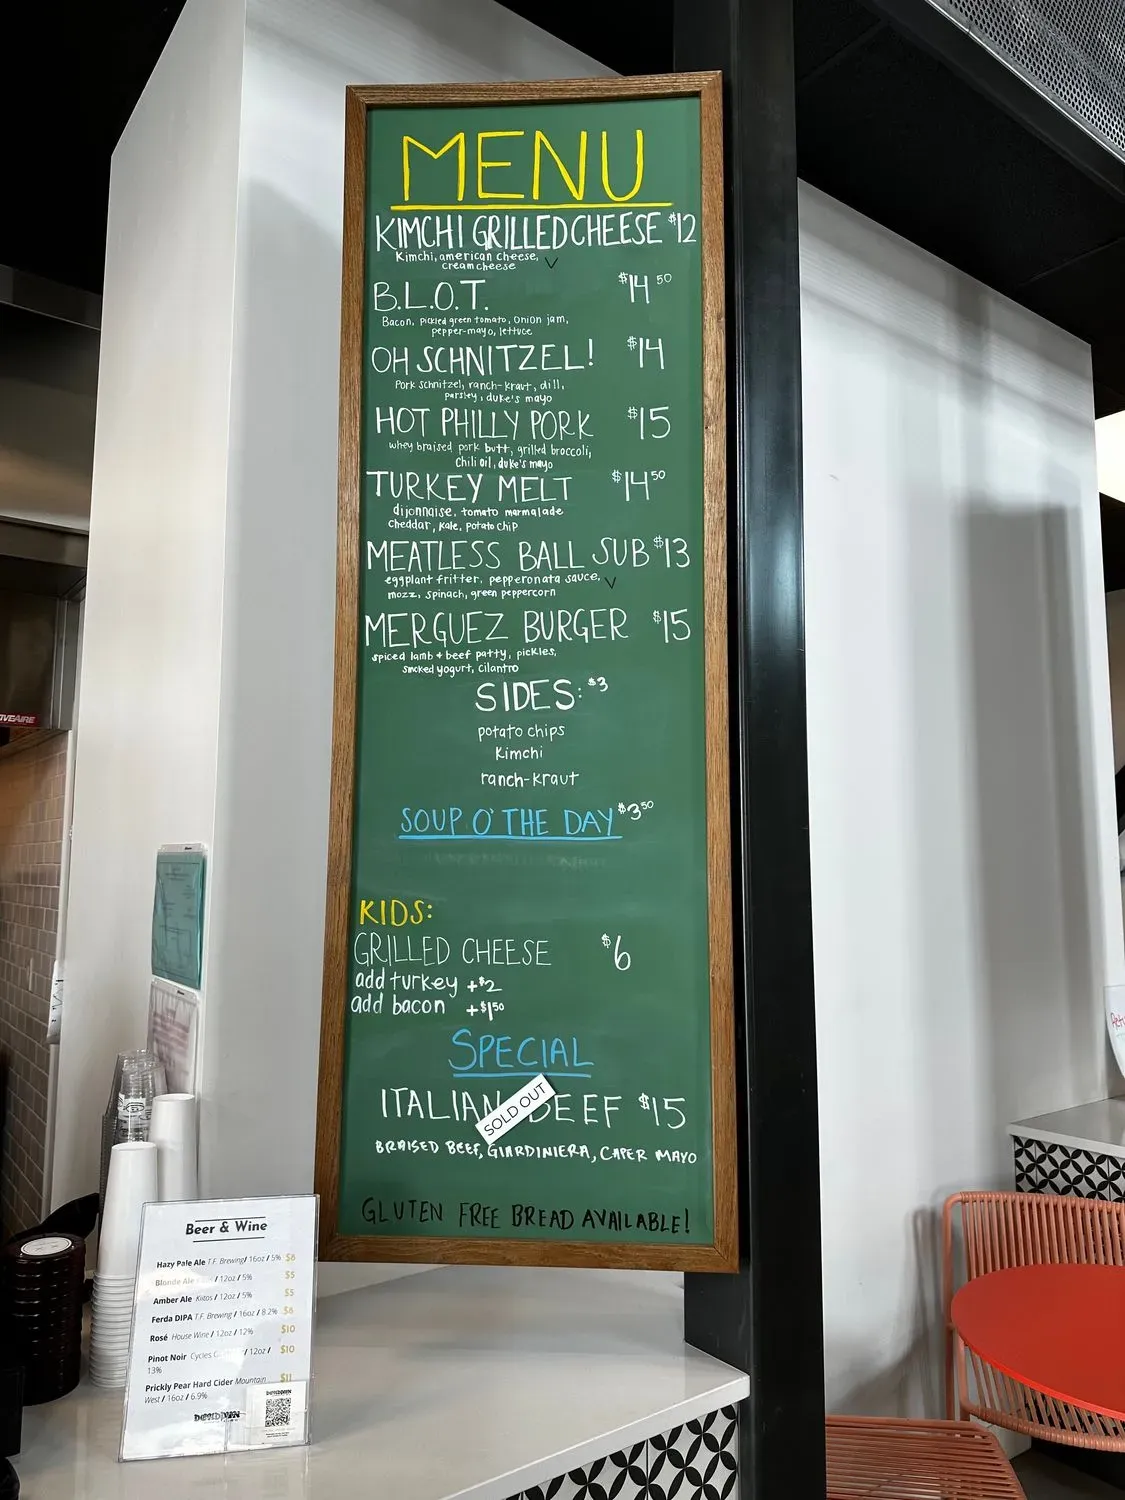 MENU
KIMCHI GRILLED CHEESE $12
Kimchi, american cheese,
creamcheese V
B.L.O.T. $14 50
Bacon, pickled green tomato, onion jam,
pepper-mayo, lettuce
OH SCHNITZEL! $14
Pork Schnitzel, ranch-kraut, dill,
parsley, duke's mayo
HOT PHILLY PORK $15
whey braised pork butt, grilled broccoli,
chili oil, duke's mayo
TURKEY MELT $14 50
dijonnaise, tomato marmalade
cheddar, kale, potato chip
MEATLESS BALL SUB $13
eggplant fritter, pepperonata sauce, V
mozz, spinach, green peppercorn
MERGUEZ BURGER $15
spiced lamb + beef patty, pickles,
smoked yogurt, cilantro
SIDES: $3
potato chips
Kimchi
ranch-kraut
SOUP O' THE DAY $3 50
KIDS:
GRILLED CHEESE $6
add turkey +$2
add bacon +$1 50
SPECIAL
ITALIAN BEEF $15
SOLD OUT
BRAISED BEEF, GIARDINIERA, CAPER MAYO
GLUTEN FREE BREAD AVAILABLE!
Beer & Wine
Hazy Pale Ale T.F. Brewing / 16oz / 5% $6
Blonde Ale / 12oz / 5% $5
Amber Ale Kiitos / 12oz / 5% $5
Ferda DIPA T.F. Brewing / 16oz / 8.2% $6
Rosé House Wine / 12oz / 12% $10
Pinot Noir Cycles / 12oz / $10
13%
Prickly Pear Hard Cider Mountain $11
West / 16oz / 6.9%